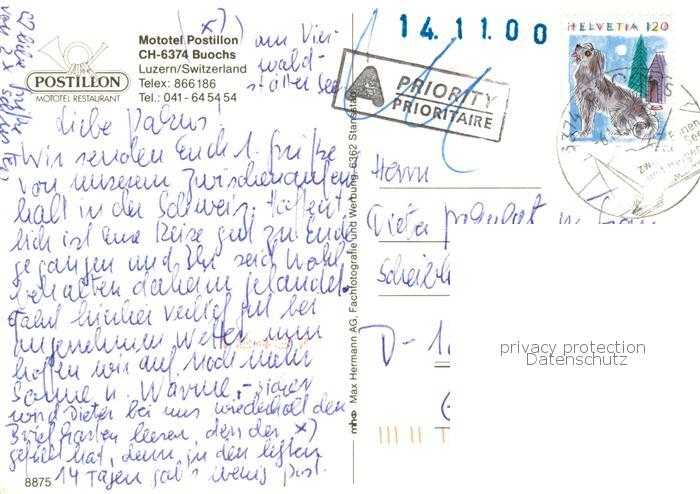 *) am Vier-
wald-
stätter See
Mototel Postillon
CH-6374 Buochs
Luzern/Switzerland
Telex: 866186
Tel.: 041 - 64 54 54
POSTILLON
MOTOTEL RESTAURANT
14.11.00
HELVETIA 120
A PRIORITY
PRIORITAIRE
Liebe
Wir senden Euch 1. Grüße
von unserem Zwischenaufent-
halt in der Schweiz. Hoffent-
lich ist Eure Reise gut zu Ende
gegangen und Ihr seid wohl
behalten daheim gelandet.
Fahrt hierher verlief gut bei
angenehmem Wetter nun
hoffen wir auf noch mehr
Sonne u. Wärme, - sicher
wird Dieter bei uns wiederholt den
Briefkasten leeren, den der *)
gefüllt hat, denn in den letzten
14 Tagen gab's wenig Post.
8875
mhe Max Hermann AG, Fachfotografie und Werbung, 6362 Stansstad
Herrn
Dieter
D-1
privacy protection
Datenschutz